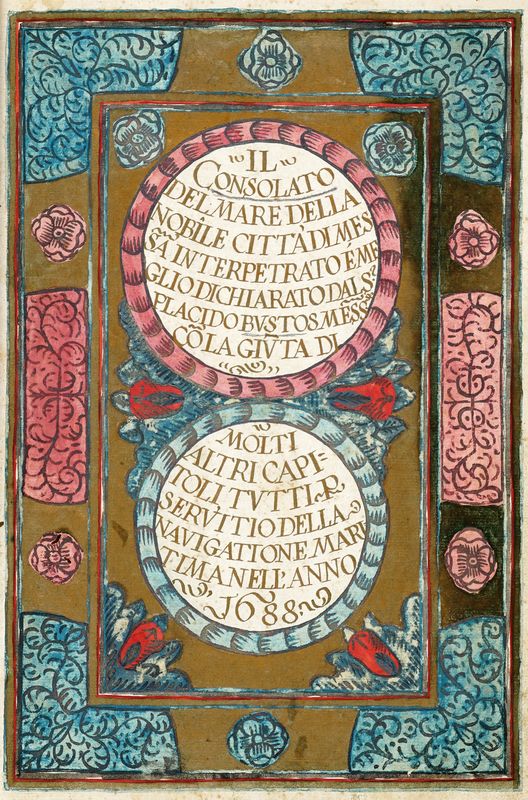 IL
CONSOLATO
DEL MARE DELLA
NOBILE CITTÀ DI MES
SÃ INTERPETRATO E ME
GLIO DICHIARATO DAL Sʳ
PLACIDO BVSTOS MESS
CÕ LA GIVTA DI
MOLTI
ALTRI CAPI-
TOLI TVTTI PR
SERVITIO DELLA
NAVIGATIONE MARI
TIMA NELL'ANNO
1688